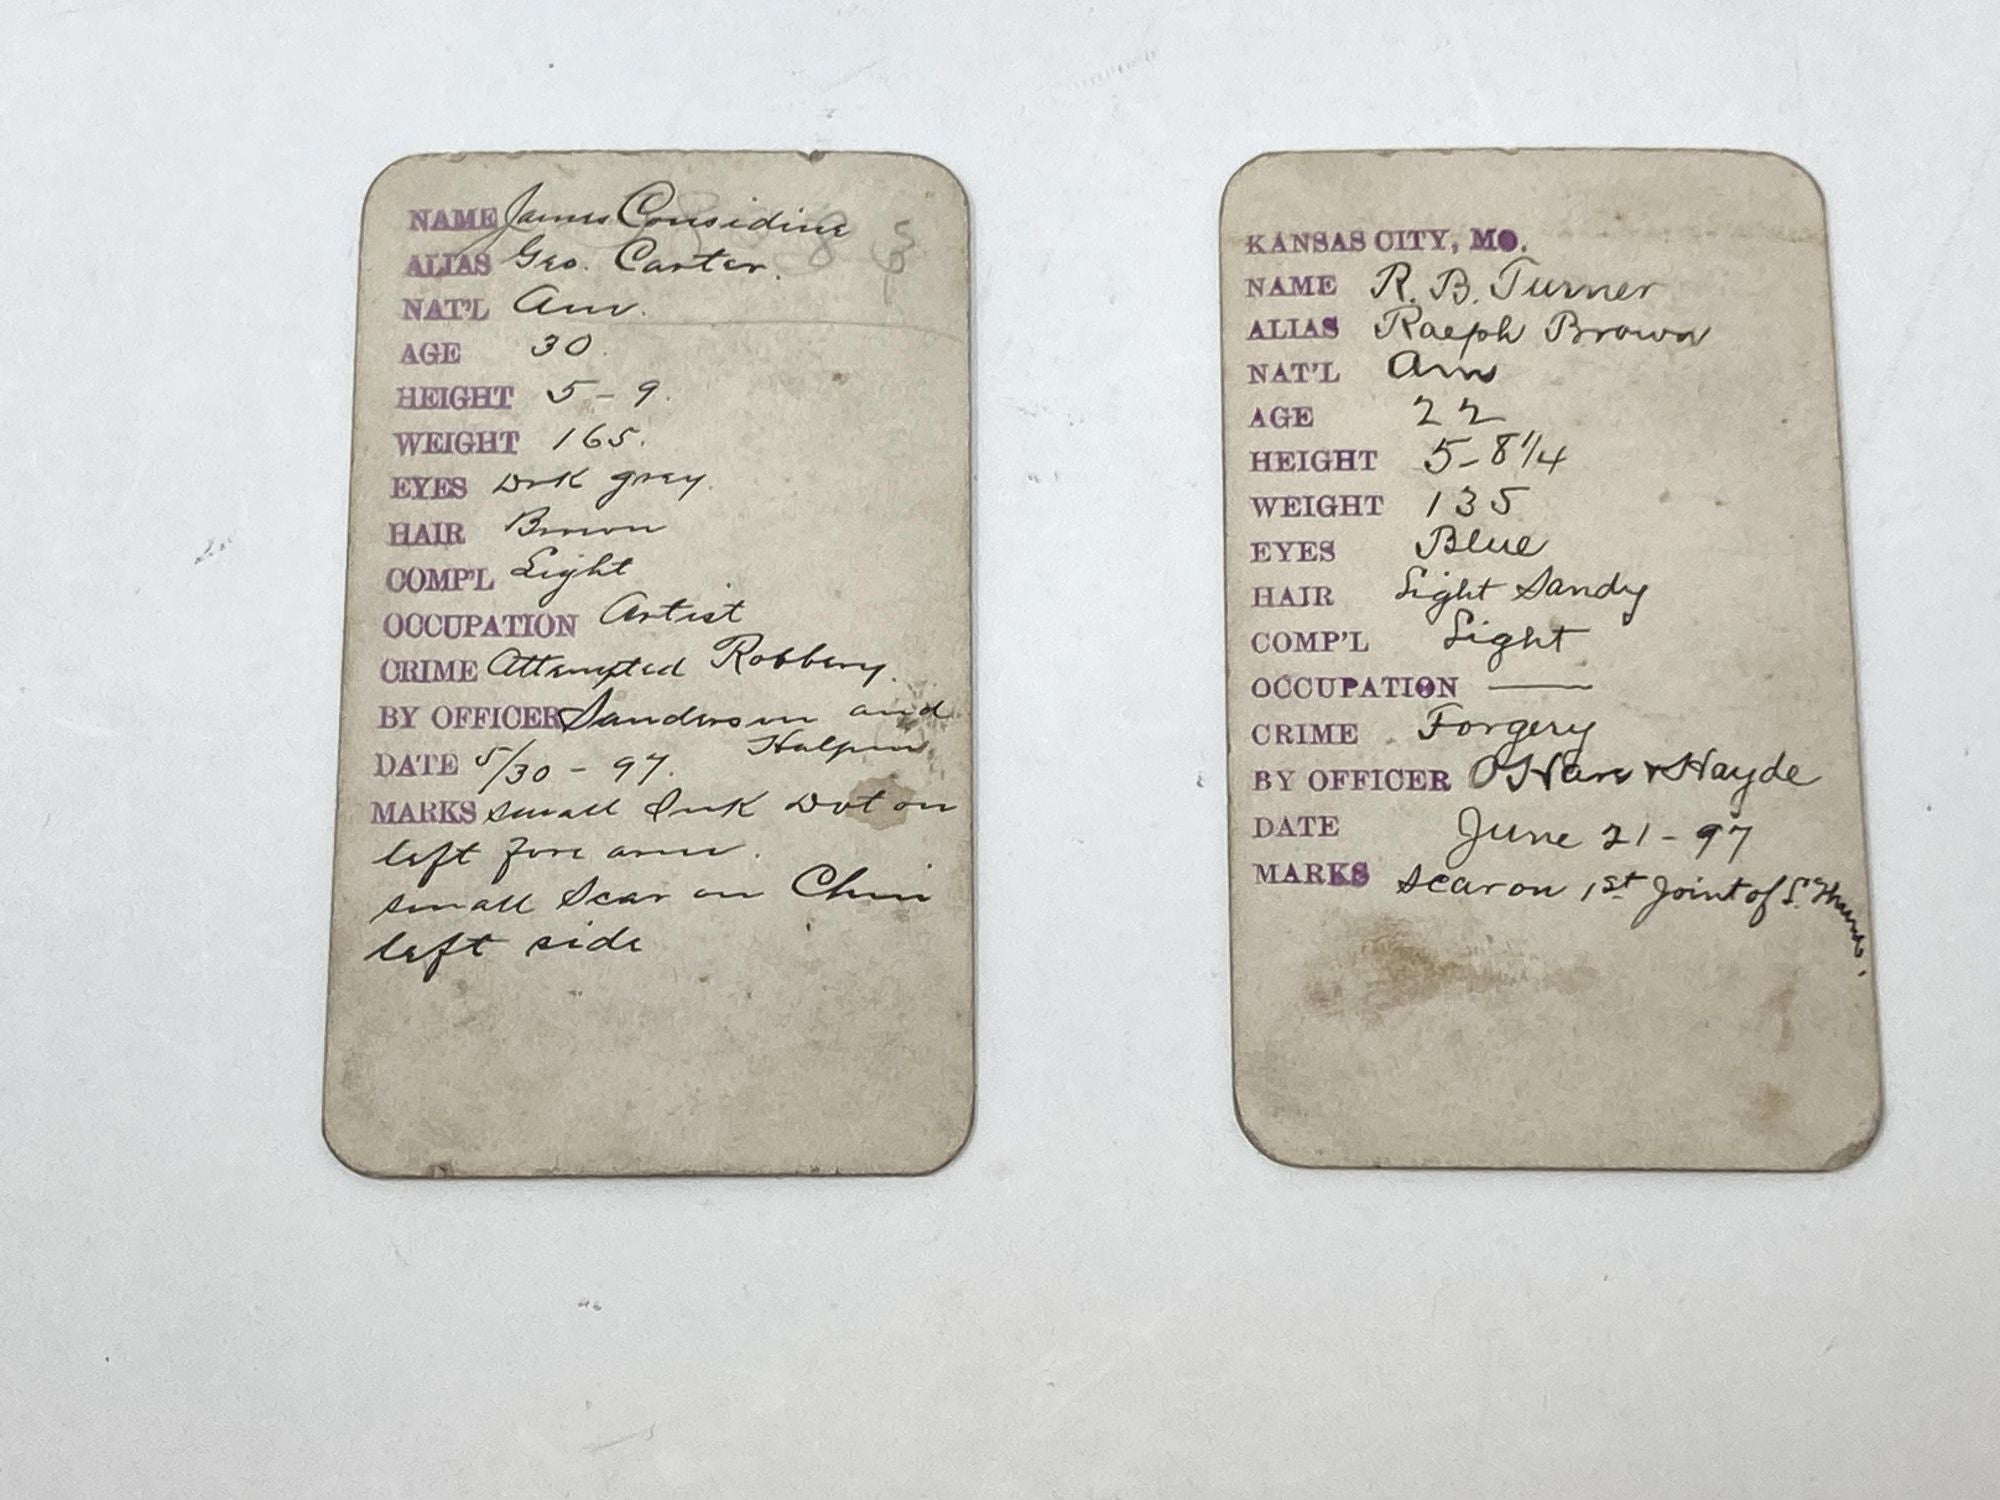 NAME James Considine
ALIAS Geo. Carter.
NAT'L Am.
AGE 30.
HEIGHT 5-9.
WEIGHT 165.
EYES Drk grey.
HAIR Brown
COMP'L Light
OCCUPATION Artist
CRIME Attempted Robbery.
BY OFFICER Sanderson and
Halpin
DATE 5/30-97.
MARKS small Ink Dot on
left fore arm.
small Scar on Chin
left side
KANSAS CITY, MO.
NAME R. B. Turner
ALIAS Ralph Brown
NAT'L Am
AGE 22
HEIGHT 5-8 1/4
WEIGHT 135
EYES Blue
HAIR Light Sandy
COMP'L Light
OCCUPATION —
CRIME Forgery
BY OFFICER O'Hare & Hayde
DATE June 21-97
MARKS Scar on 1st Joint of L.